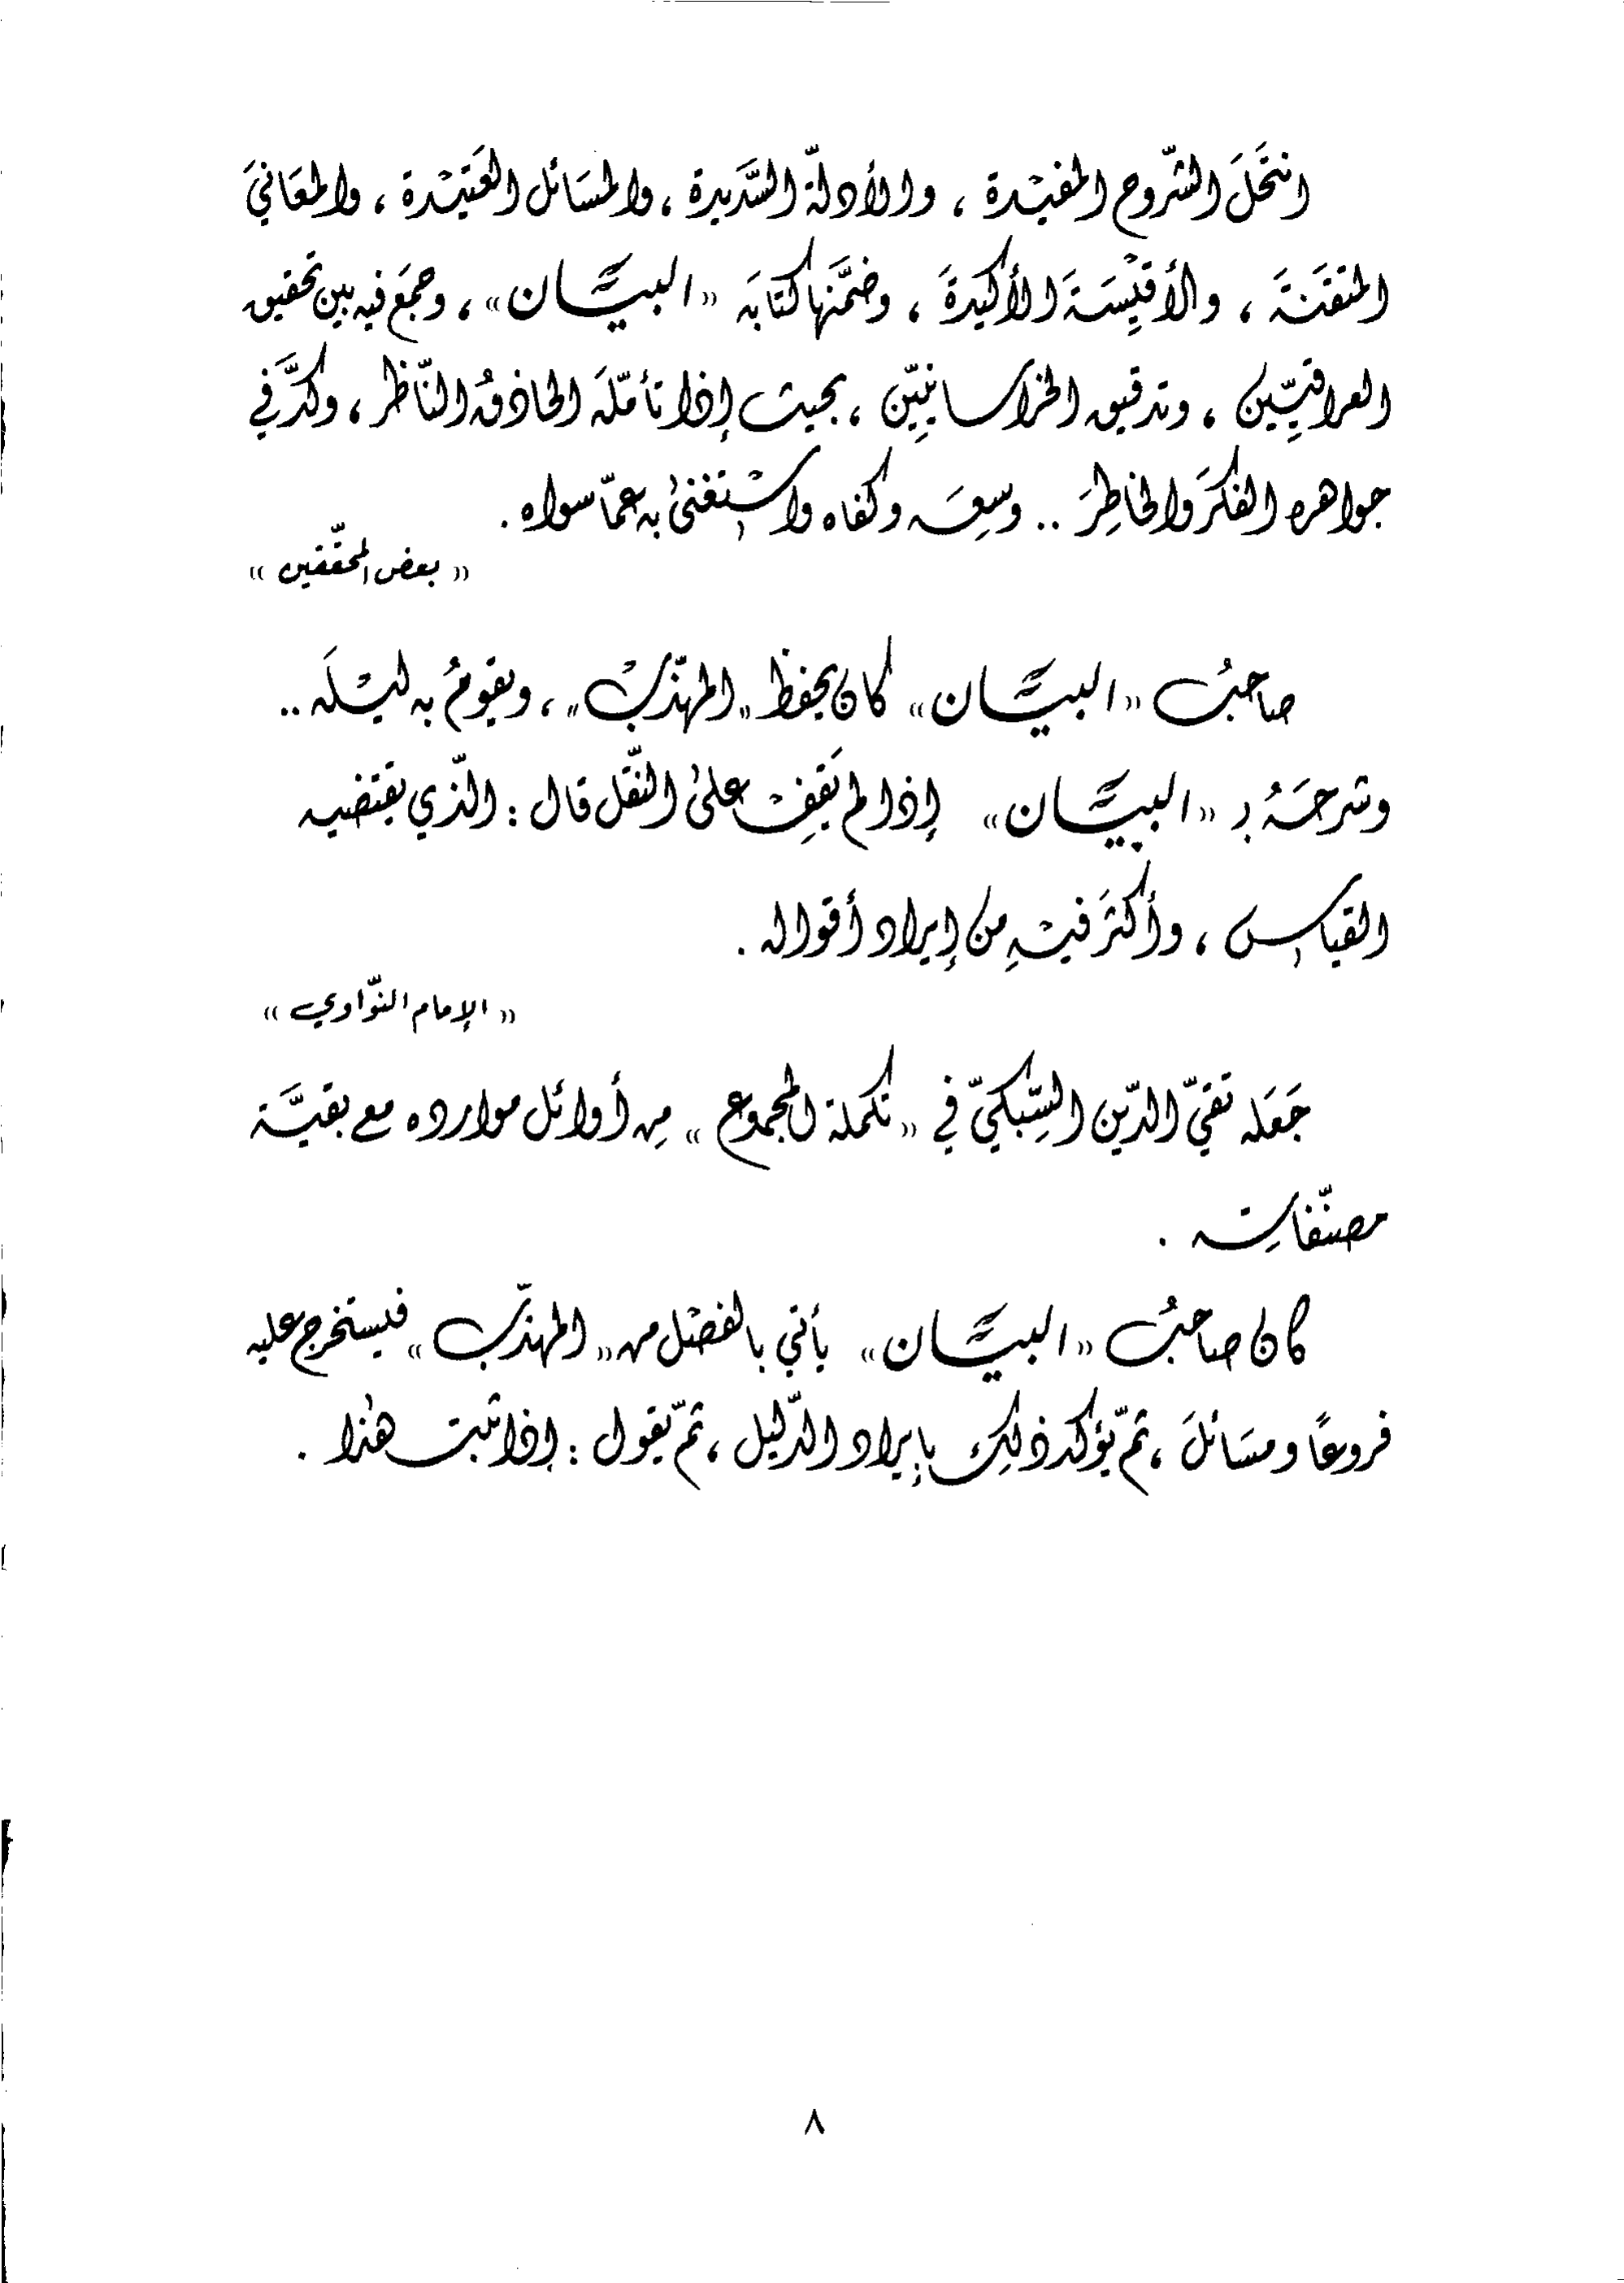 انتَحَلَ الشّروح المفيْدة ، والأدلّة السَّديدة ، والمسَائل العَتيْدة ، والمعَانيَ
المتقَنةَ ، والأقيِْسَةَ الأكيدةَ ، وضمَّنها كتابَه « البيَّان » ، وجمَع فيه بين تحقيق
العراقيِّين ، وتدقيق الخراسانيِّين ، بحيث إذا تأمّلَه الحاذقُ النّاظر ، وكدَّ في
جواهره الفكرَ والخاطِرَ .. وسِعَه وكفاه واسْتغنىٰ به عمّا سواه .
« بعض المحقّقين »
صاحبُ « البيَّان » كان يحفظ « المهذّبْ » ، ويقومُ به ليْلَه ..
وشرحَهُ بـ « البيَّان » إذا لم يَقِفْ علىٰ النّقل قال : الّذي يقتضيه
القياس ، وأكثَر فيْهِ من إيراد أقواله .
« الإمام النوّاوي »
جَعَله تقيّ الدّين السِّبكيّ في « تكملة المجموع » مِن أوائل موارده مع بقيَّة
مصنّفاتِه .
كان صاحبُ « البيَّان » يأتي بالفصْل من « المهذّب » فيستخرج عليه
فروعًا ومسَائلَ ، ثمّ يؤكد ذلِك بإيراد الدّليل ، ثمّ يقول : إذا ثبت هٰذا .
٨